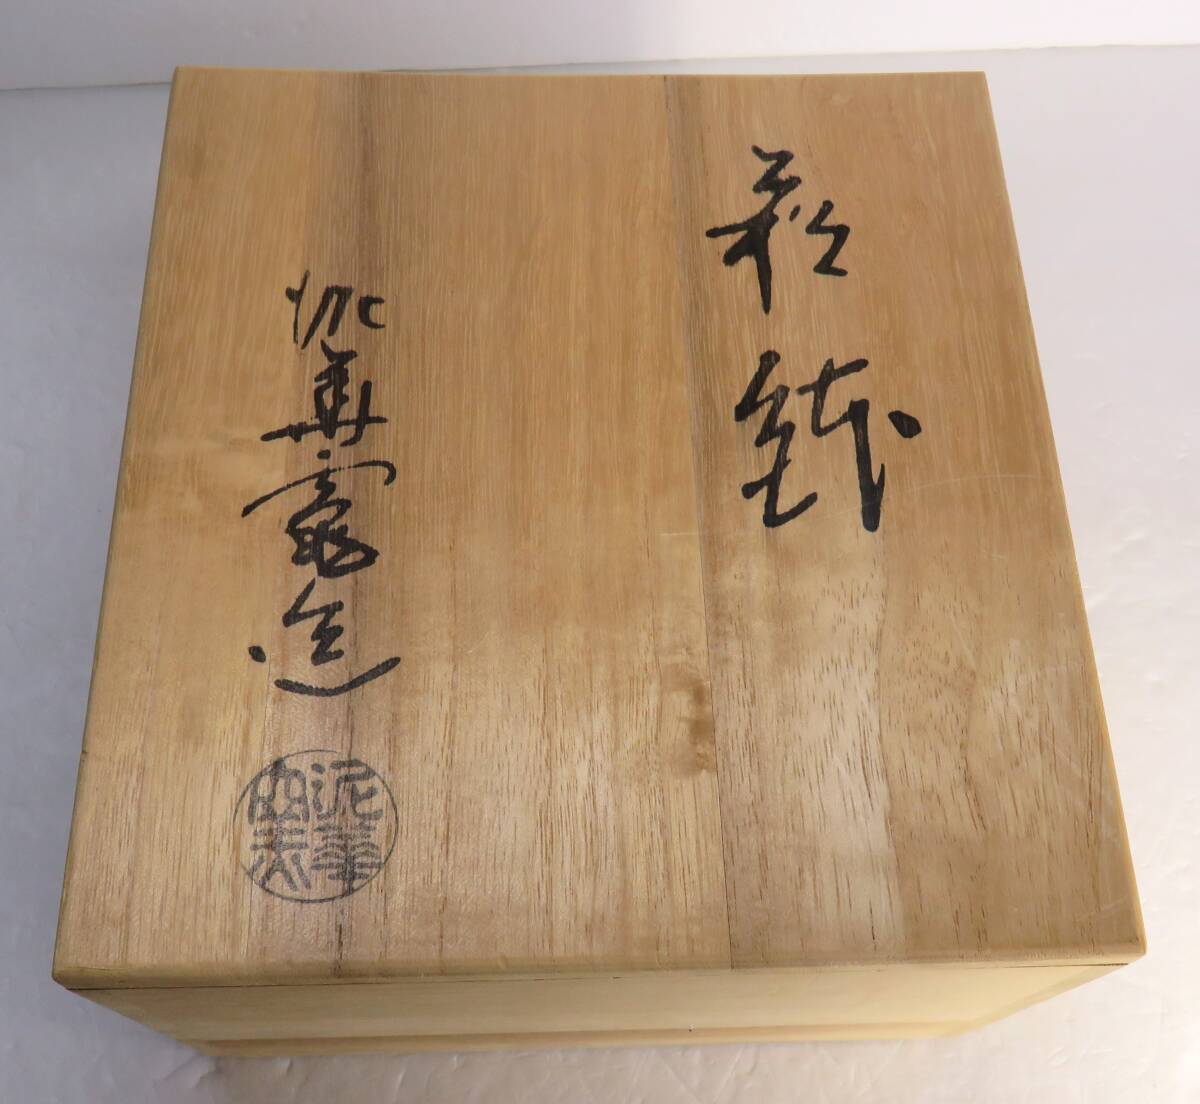 萩鉢
泥華窯造
泥華
窯